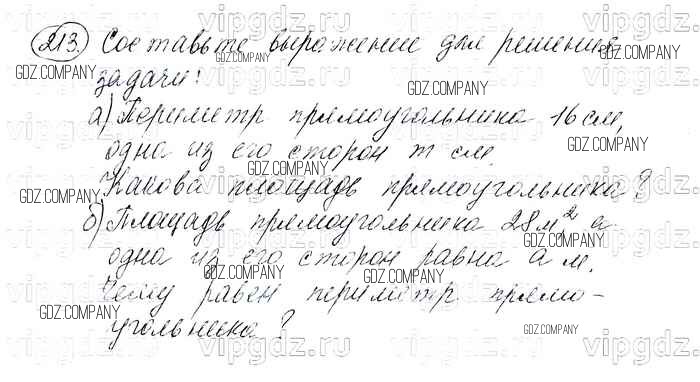 213. Составьте выражение для решения
задачи:
а) Периметр прямоугольника 16 см,
одна из его сторон m см.
Какова площадь прямоугольника?
б) Площадь прямоугольника 28 м², а
одна из его сторон равна a м.
Чему равен периметр прямо-
угольника?
vipgdz.ru
GDZ.COMPANY